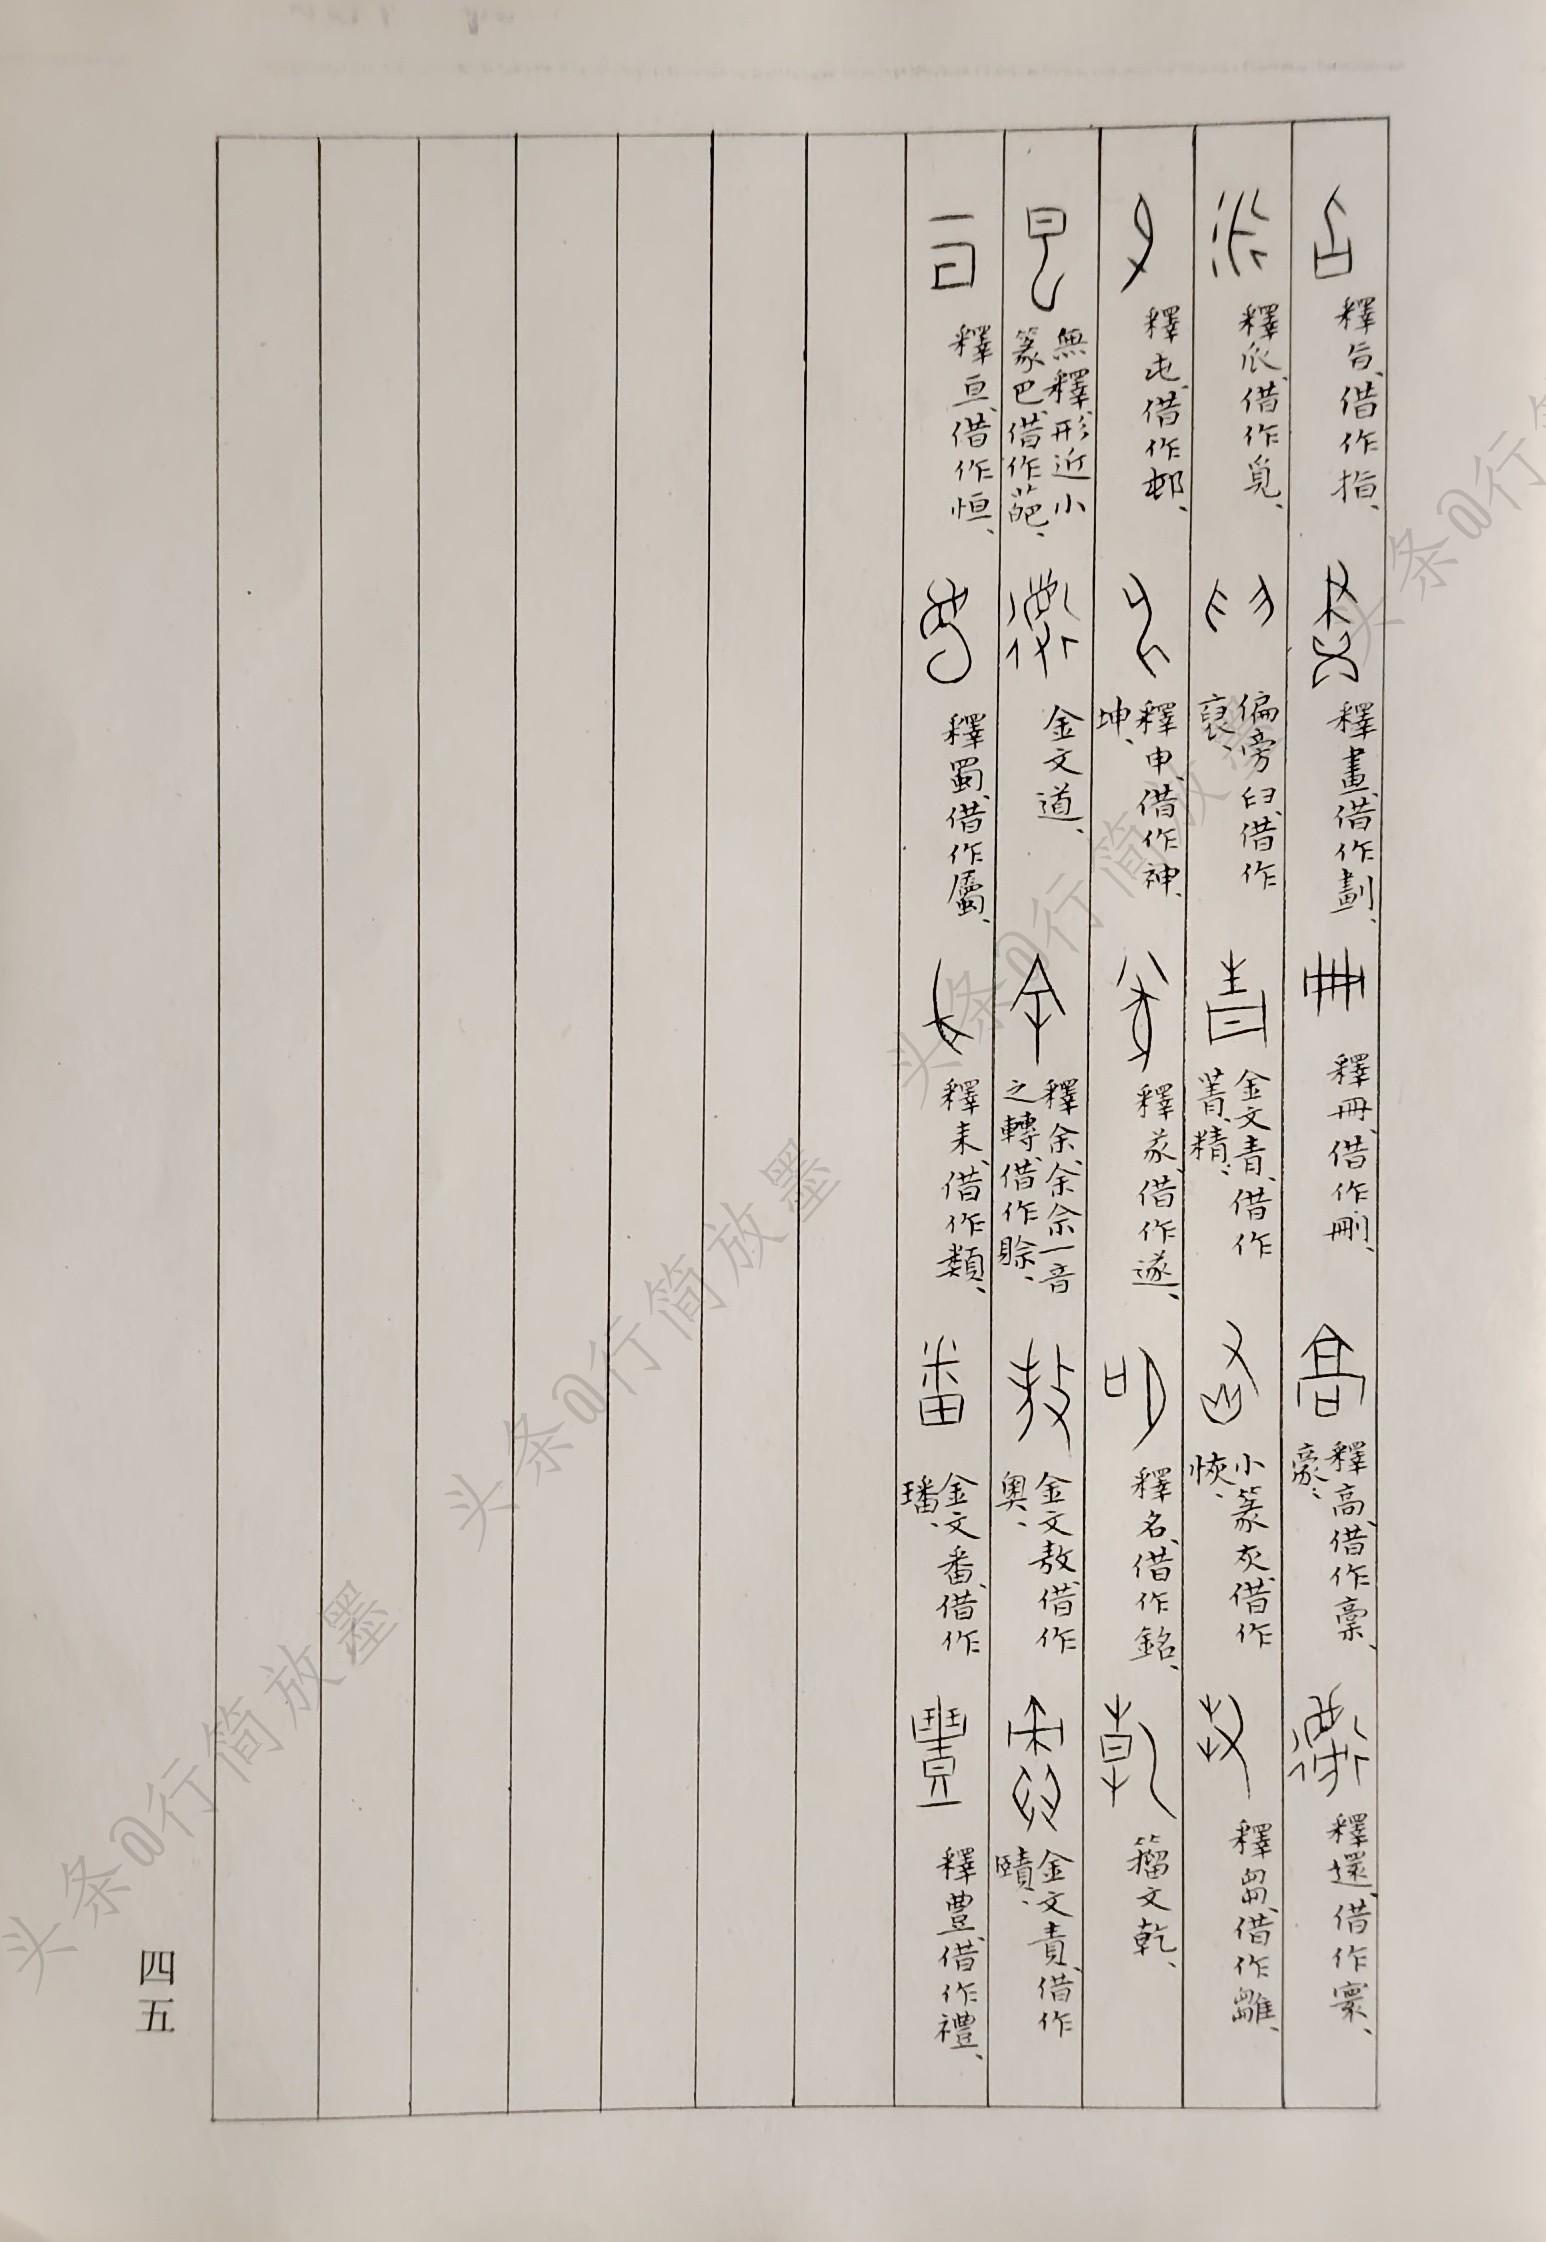 釋旨、借作指、釋畫、借作劃、釋冊、借作刪、釋高、借作稾、豪、釋還、借作寰、
釋𠂢、借作覓、偏旁臼、借作裒、金文青、借作菁、精、小篆灰、借作恢、釋𠧪、借作雛、
釋屯、借作邨、釋申、借作神、坤、釋㒸、借作遂、釋名、借作銘、籀文乾、
無釋、形近小篆巴、借作葩、金文道、釋余、余佘一音之轉、借作賒、金文敖、借作奧、金文責、借作賾、
釋亘、借作恒、釋蜀、借作屬、釋耒、借作類、金文番、借作璠、釋豊、借作禮、
四五
头条@行简放墨
头条@行简放墨
头条@行简放墨
头条@行简